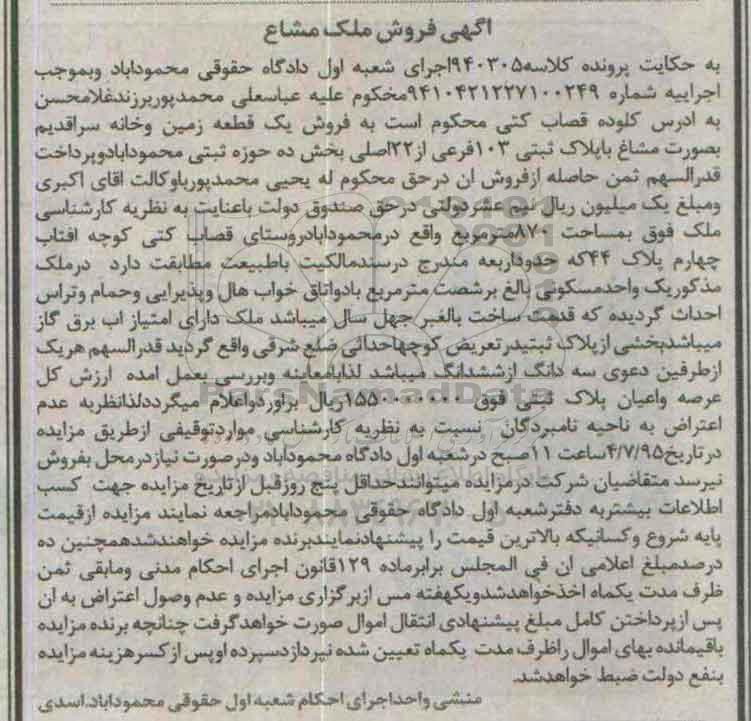 اگهی فروش ملک مشاع
به حکایت پرونده کلاسه۹۴۰۳۰۵اجرای شعبه اول دادگاه حقوقی محموداباد وبموجب
اجراییه شماره ۹۴۱۰۴۲۱۲۲۷۱۰۰۲۴۹محکوم علیه عباسعلی محمدپورپرزندغلامحسن
به ادرس کلوده قصاب کتی محکوم است به فروش یک قطعه زمین وخانه سراقدیم
بصورت مشاع باپلاک ثبتی ۱۰۳فرعی از۲۲اصلی بخش ده حوزه ثبتی محمودابادوپرداخت
قدرالسهم ثمن حاصله ازفروش ان درحق محکوم له یحیی محمدپورباوکالت اقای اکبری
ومبلغ یک میلیون ریال نیم عشردولتی درحق صندوق دولت باعنایت به نظریه کارشناسی
ملک فوق بمساحت ۸۷۰مترمربع واقع درمحمودابادروستای قصاب کتی کوچه افتاب
چهارم پلاک ۴۴که حدوداربعه مندرج درسندمالکیت باطبیعت مطابقت دارد درملک
مذکوریک واحدمسکونی بالغ برشصت مترمربع بادواتاق خواب هال وپذیرایی وحمام وتراس
احداث گردیده که قدمت ساخت بالغبر جهل سال میباشد ملک دارای امتیاز اب برق گاز
میباشدبخشی ازپلاک ثبتیدرتعریض کوچهاحداثی ضلع شرقی واقع گردید قدرالسهم هریک
ازطرفین دعوی سه دانگ ازششدانگ میباشد لذابامعاینه وبررسی بعمل امده ارزش کل
عرصه واعیان پلاک ثبتی فوق ۱۵۵۰۰۰۰۰۰۰ریال براوردواعلام میگرددلذانظربه عدم
اعتراض به ناحیه نامبردگان نسبت به نظریه کارشناسی مواردتوقیفی ازطریق مزایده
درتاریخ۴/۷/۹۵ساعت ۱۱صبح درشعبه اول دادگاه محموداباد ودرصورت نیازدرمحل بفروش
نیرسد متقاضیان شرکت درمزایده میتوانندحداقل پنج روزقبل ازتاریخ مزایده جهت کسب
اطلاعات بیشتربه دفترشعبه اول دادگاه حقوقی محمودابادمراجعه نمایند مزایده ازقیمت
پایه شروع وکسانیکه بالاترین قیمت را پیشنهادنمایندبرنده مزایده خواهندشدهمچنین ده
درصدمبلغ اعلامی ان فی المجلس برابرماده ۱۲۹قانون اجرای احکام مدنی ومابقی ثمن
ظرف مدت یکماه اخذخواهدشدویکهفته مس ازبرگزاری مزایده و عدم وصول اعتراض به ان
پس ازپرداختن کامل مبلغ پیشنهادی انتقال اموال صورت خواهدگرفت چنانچه برنده مزایده
باقیمانده بهای اموال راظرف مدت یکماه تعیین شده نپردازدسپرده اوپس ازکسرهزینه مزایده
بنفع دولت ضبط خواهدشد.
منشی واحداجرای احکام شعبه اول حقوقی محموداباد.اسدی